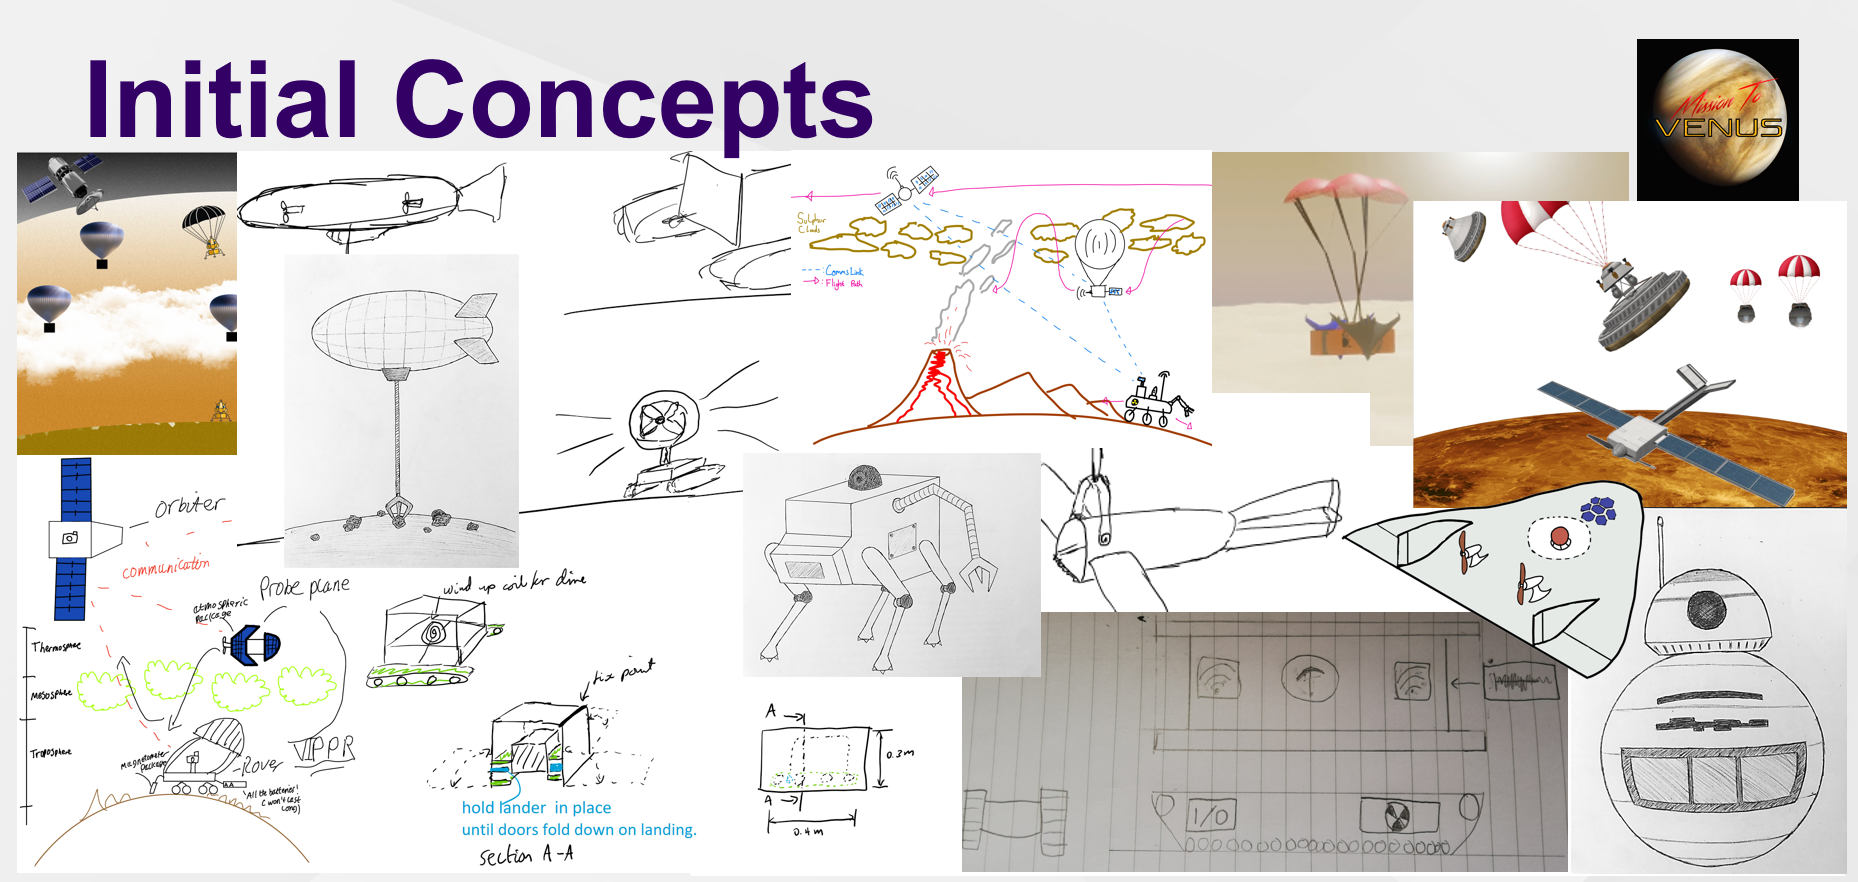 Initial Concepts
Mission To
VENUS
Sulphur
Clouds
: Comms Link
: Flight Path
Orbiter
communication
Probe plane
atmospheric
package
Thermosphere
Mesosphere
Troposphere
Magnetometer
package
Rover
VIPPR
All the batteries!
(won't last
long)
wind up coil for
fix point
hold lander in place
until doors fold down on landing.
section A-A
A
A
0.3m
0.4m
I/O